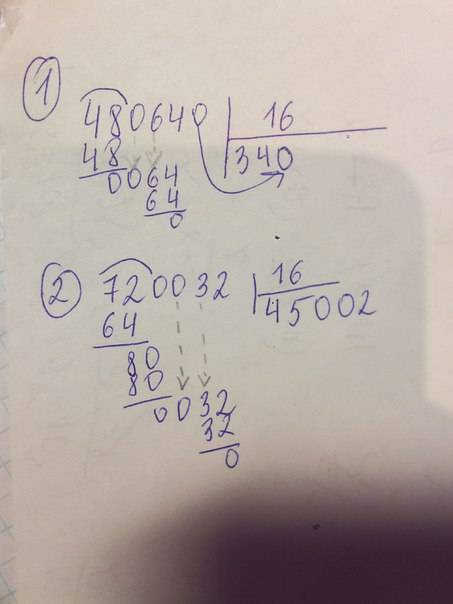 1
480640 16
48 340
0064
64
0
2
720032 16
64 45002
80
80
0032
32
0